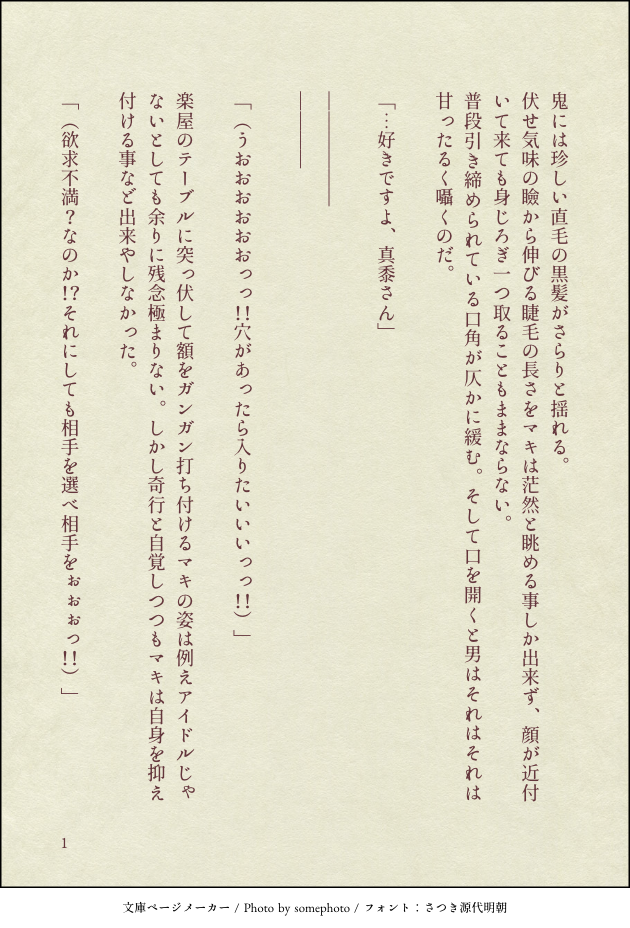 鬼には珍しい直毛の黒髪がさらりと揺れる。
伏せ気味の瞼から伸びる睫毛の長さをマキは茫然と眺める事しか出来ず、顔が近付
いて来ても身じろぎ一つ取ることもままならない。
普段引き締められている口角が仄かに緩む。そして口を開くと男はそれはそれは
甘ったるく囁くのだ。
「…好きですよ、真黍さん」
――――――
――――
「（うおおおおおおっっ!!穴があったら入りたいいいっっ!!）」
楽屋のテーブルに突っ伏して額をガンガン打ち付けるマキの姿は例えアイドルじゃ
ないとしても余りに残念極まりない。しかし奇行と自覚しつつもマキは自身を抑え
付ける事など出来やしなかった。
「（欲求不満？なのか!?それにしても相手を選べ相手をぉぉぉっ!!）」
1
文庫ページメーカー / Photo by somephoto / フォント：さつき源代明朝